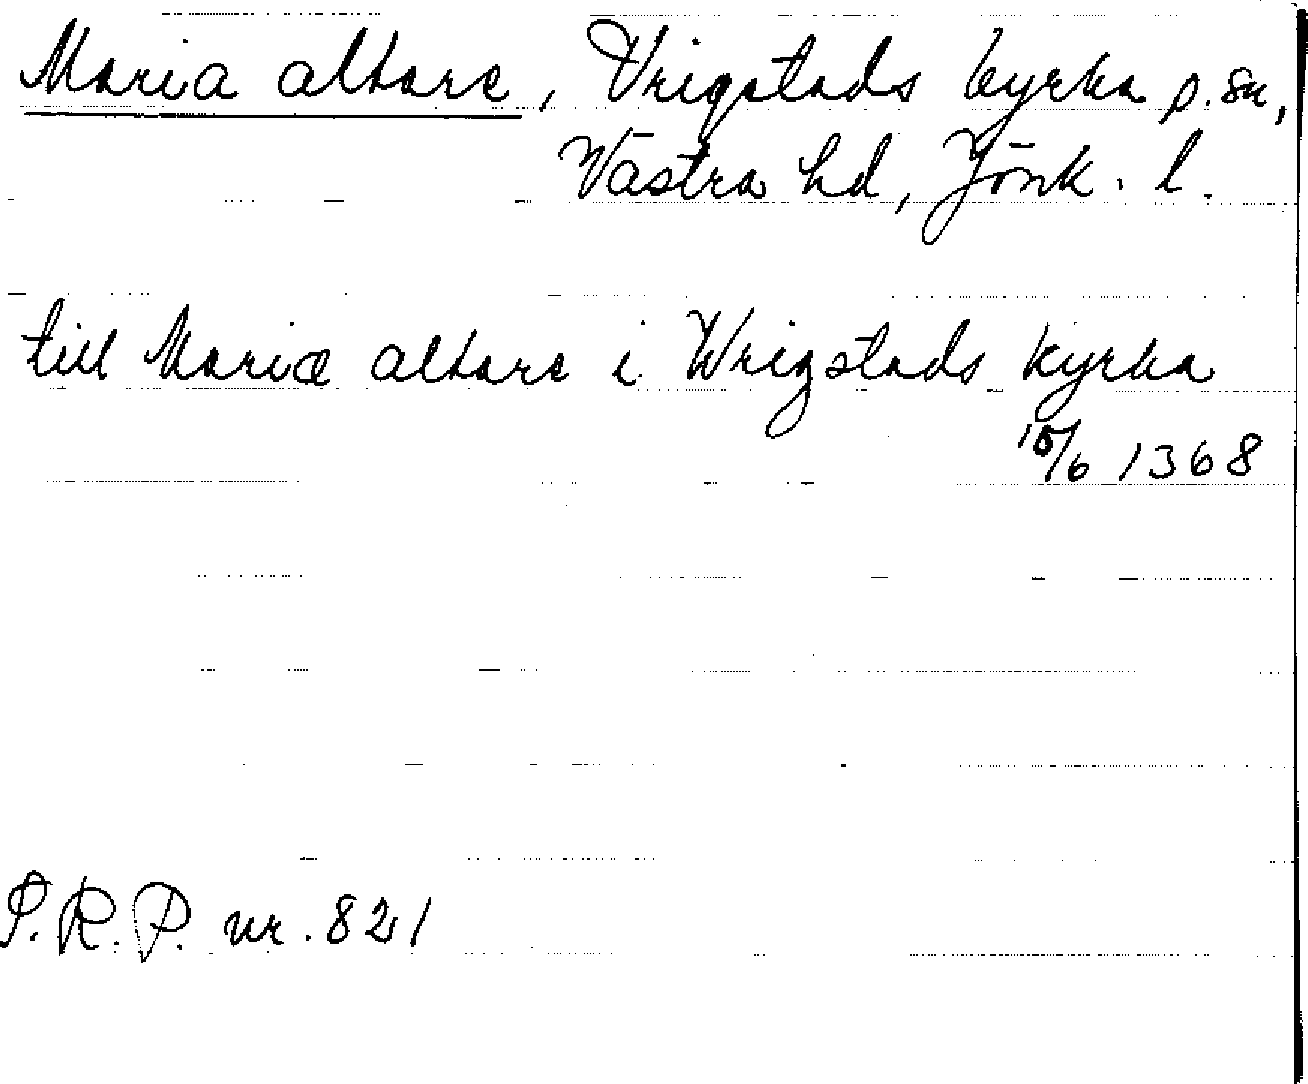 Maria altare, Vrigstads kyrka o. sn,
Västra hd, Jönk. l.
till Mariæ altare i Wrigstads kyrka
15/6 1368
S.R.P. nr. 821